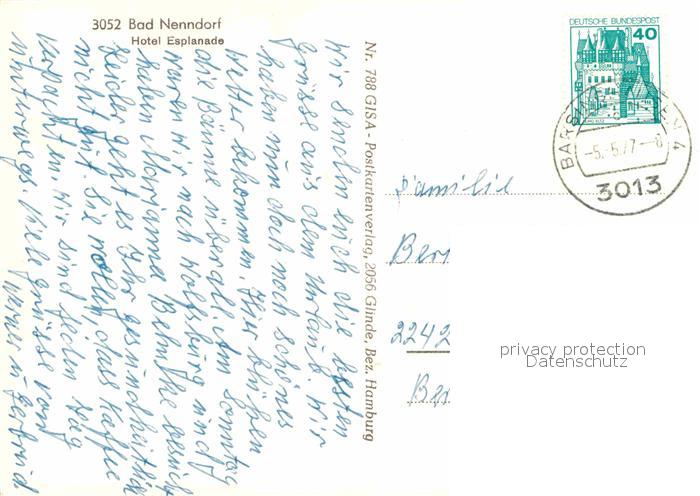 3052 Bad Nenndorf
Hotel Esplanade
Wir senden euch die besten
Grüsse aus dem Urlaub. Wir
haben nun doch noch schönes
Wetter bekommen. Hier blühen
die Bäume überall. Am Sonntag
waren wir nach Wolfsburg und
haben Marianna besucht
leider geht es Ihr gesundheitlich
nicht gut. Sie
wir sind jeden Tag
unterwegs. Viele Grüsse von
Werner u. Gertrud
Nr. 788 GISA - Postkartenverlag, 2056 Glinde, Bez. Hamburg
DEUTSCHE BUNDESPOST
40
BARSINGHAUSEN 4
-5.-5.77.-8
3013
Familie
Ber
2242
Ber
privacy protection
Datenschutz